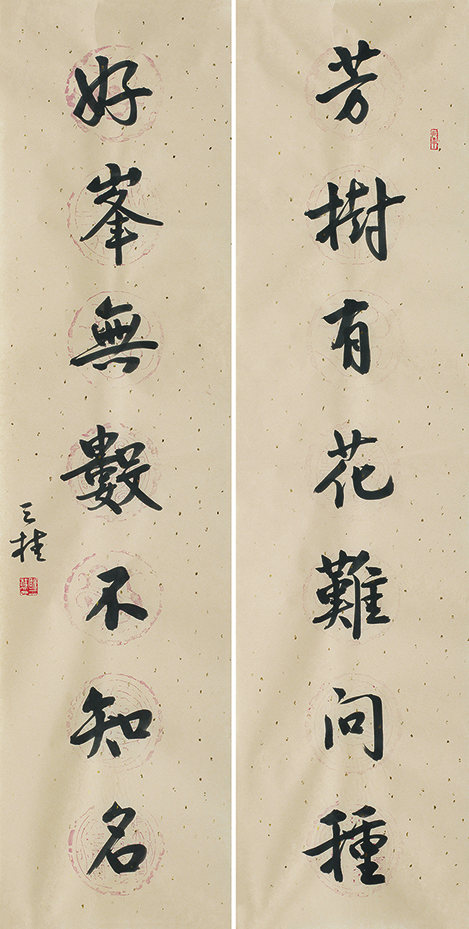 芳樹有花難问種
好峯無數不知名